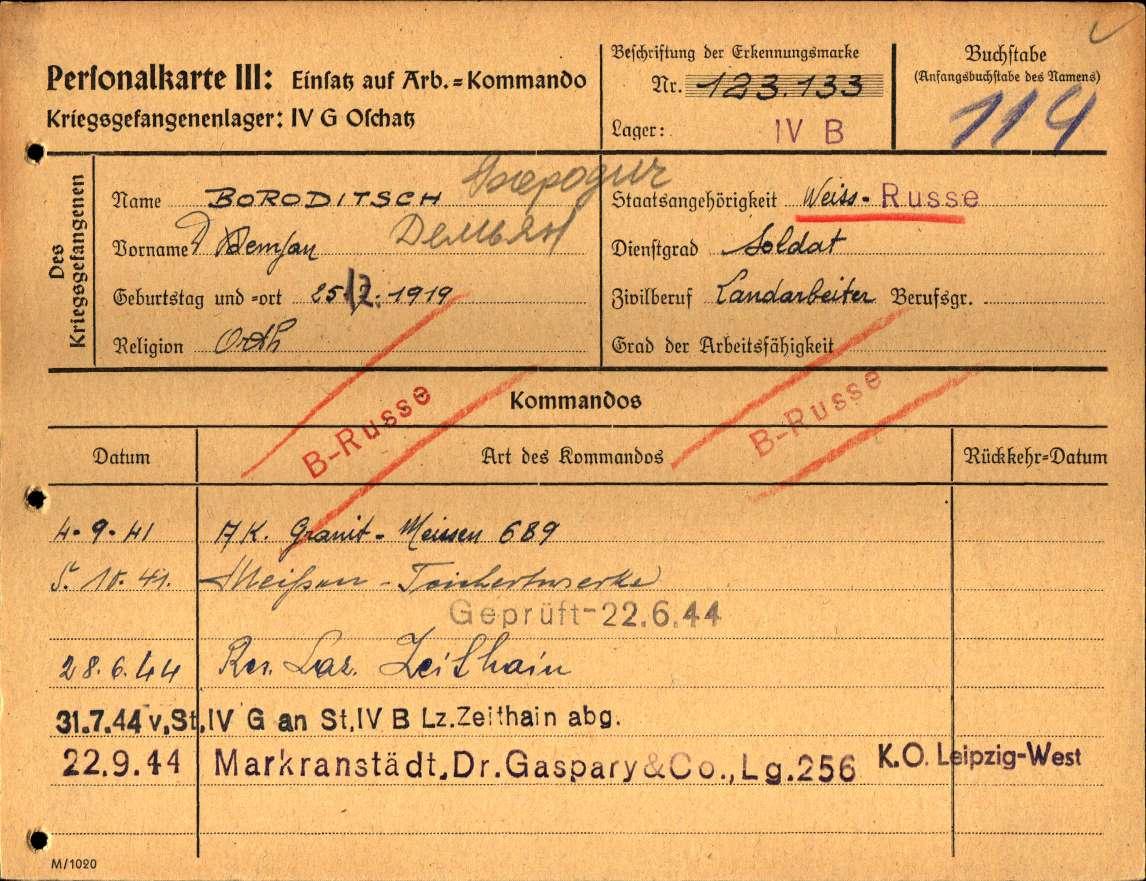 Personalkarte III: Einsatz auf Arb.=Kommando
Kriegsgefangenenlager: IV G Oschatz
Beschriftung der Erkennungsmarke
Nr. 123.133
Lager: IV B
Buchstabe
(Anfangsbuchstabe des Namens)
114
Des Kriegsgefangenen
Name BORODITSCH
Vorname Demjan Демьян
Geburtstag und =ort 25.12.1919
Religion Orth
Staatsangehörigkeit Weiss-Russe
Dienstgrad Soldat
Zivilberuf Landarbeiter Berufsgr.
Grad der Arbeitsfähigkeit
B-Russe
B-Russe
Kommandos
Datum Art des Kommandos Rückkehr=Datum
4.9.41 A K. Granit-Meissen 689
5.10.41. Meißen - Teichertwerke
Geprüft-22.6.44
28.6.44 Res. Laz. Zeithain
31.7.44 v.St.IV G an St.IV B Lz.Zeithain abg.
22.9.44 Markranstädt.Dr.Gaspary&Co.,Lg.256 K.O. Leipzig-West
M/1020